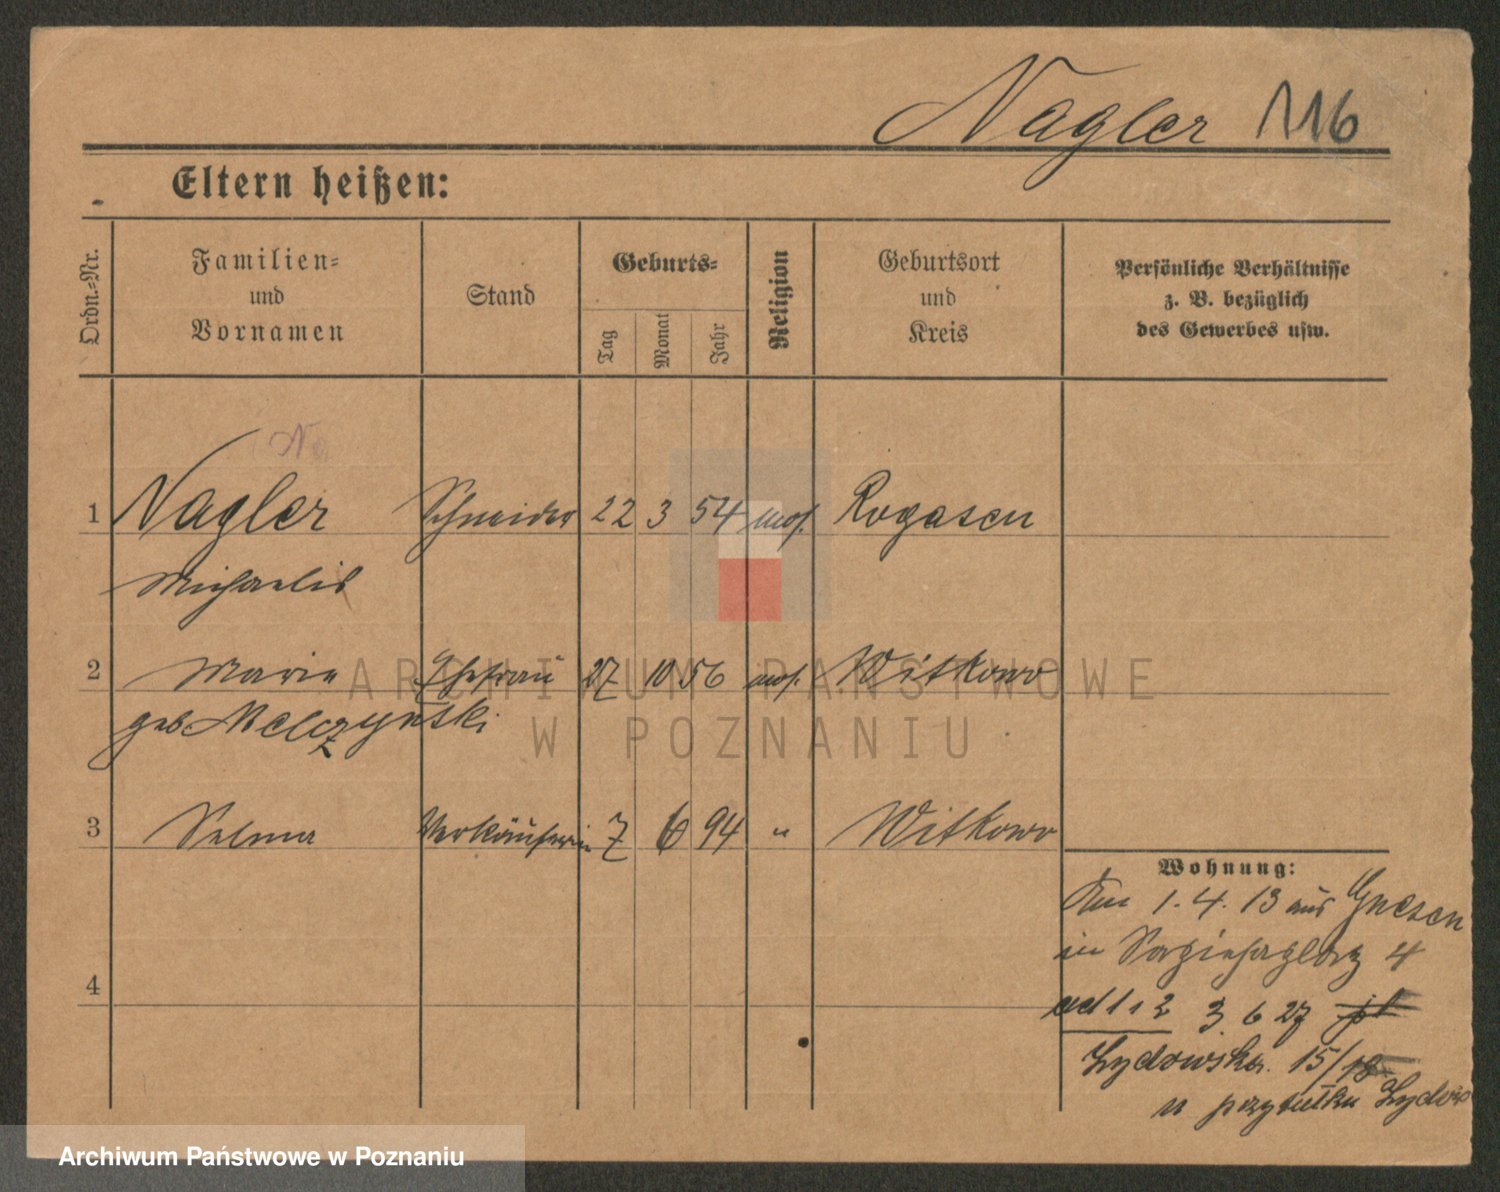 Nagler 116
Eltern heißen:
Ordn.-Nr.
Familien-
und
Vornamen
Stand
Geburts-
Tag
Monat
Jahr
Religion
Geburtsort
und
Kreis
Persönliche Verhältnisse
z. B. bezüglich
des Gewerbes usw.
1 Nagler Schneider 22 3 54 mos. Rogasen
Michaelis
2 Marie Ehefrau 27 10 56 mos. Witkowo
geb. Melczyński
3 Selma Verkäuferin 7 6 94 " Witkowo
4
Wohnung:
Am 1.4.13 aus Gnesen
in Sapiehaplatz 4
ad 1 u 2 3 6 27
Żydowska. 15/18
u przytułku Żydow
ARCHIWUM PAŃSTWOWE
W POZNANIU
Archiwum Państwowe w Poznaniu